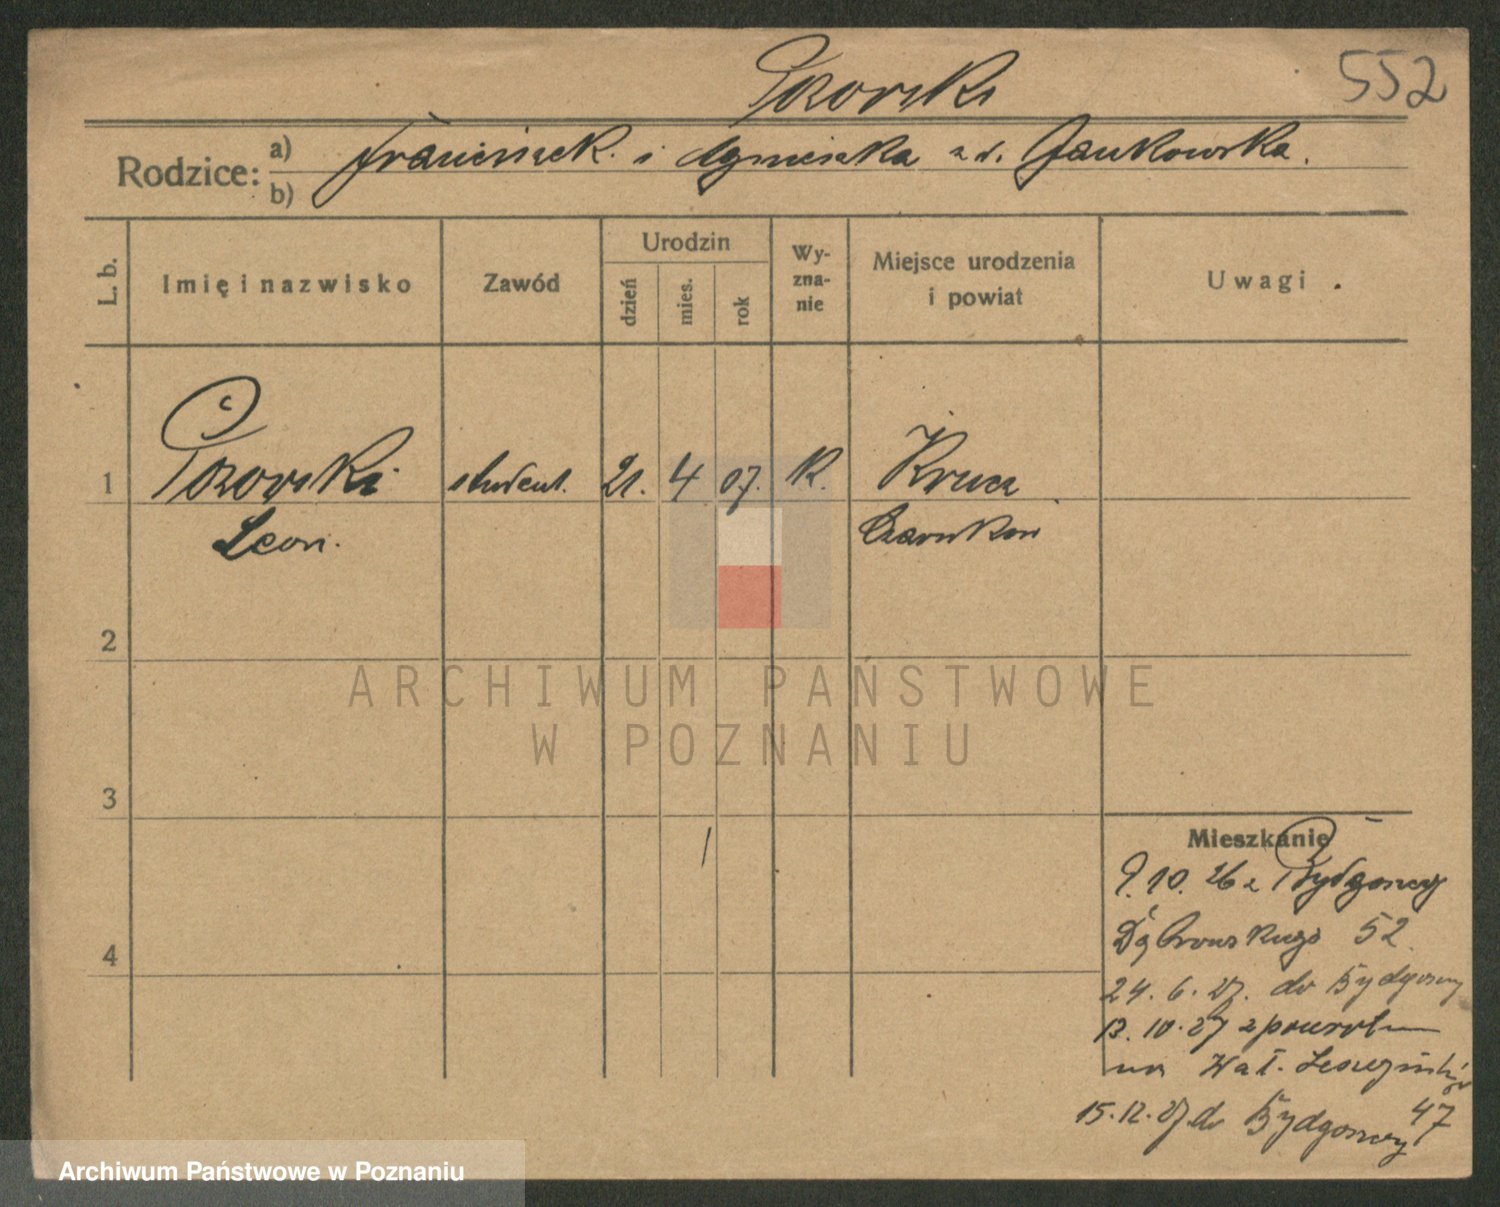 552
Rodzice:
a) Franciszek i Agnieszka z d. Jankowska.
b)
L. b.
Imię i nazwisko
Zawód
Urodzin
dzień
mies.
rok
Wy-
zna-
nie
Miejsce urodzenia
i powiat
Uwagi
1
student. 21. 4 07. K. Krucz
Leon. Czarnków
2
3
4
Mieszkanie
9. 10. 26 z Bydgoszczy
Dąbrowskiego 52
24. 6. 27. do Bydgoszczy
13. 10. 27 z powrotem
na Wał. Leszczyńskiego
47
15. 12. 27. do Bydgoszczy
ARCHIWUM PAŃSTWOWE
W POZNANIU
Archiwum Państwowe w Poznaniu